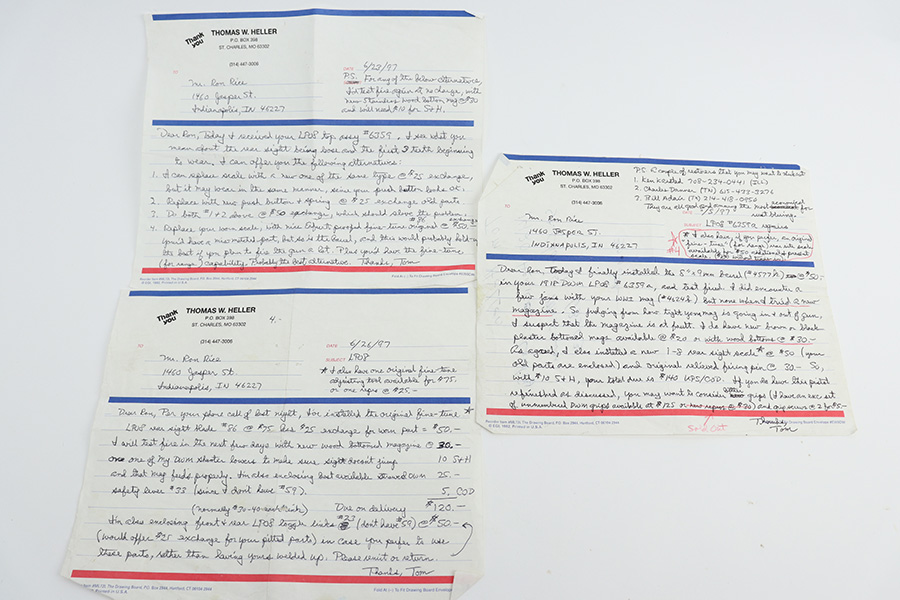 Thank you
THOMAS W. HELLER
P.O. BOX 398
ST. CHARLES, MO 63302
(314) 447-3006
TO
Mr. Ron Rice
1460 Jasper St.
Indianapolis, IN 46227
DATE 6/22/97
P.S. For any of the below alternatives,
I'd test fire again at no charge, with
new Stainless wood bottom mag @ $30
and will need $10 for S+H.
Dear Ron, Today I received your LP08 top assy #6359. I see what you
mean about the rear sight being loose and the first 3 teeth beginning
to wear. I can offer you the following alternatives:
1. I can replace scale with a new one of the same type @ $25 exchange,
but it may wear in the same manner, since your push button looks ok.
2. Replace with new push button + spring @ $25 exchange old parts.
3. Do both #1 + 2 above @ $50 exchange, which should solve the problem.
4. Replace your worn scale, with nice original @ $50.-
You'd have a mismatched part, but so it'll be, and this would probably hold up
the best if you plan to fire the gun a lot. Plus you'd have the fine-tune
(for range) capability. Probably the best alternative. Thanks, Tom
Thank you
THOMAS W. HELLER
P.O. BOX 398
ST. CHARLES, MO 63302
(314) 447-3006
4.-
TO
Mr. Ron Rice
1460 Jasper St.
Indianapolis, IN 46227
DATE 6/26/97
SUBJECT LP08
* I also have one original fine-tune
adjusting tool available for $75.
or one repro @ $25.-
Dear Ron, Per your phone call of last night, I've installed the original fine-tune *
LP08 rear sight slide #86 @ $75 less $25 exchange for worn part = $50.-
I will test fire in the next few days with new wood bottomed magazine @ 30.-
on one of my DWM shooter lowers to make sure sight doesn't jump 10 S+H
and that mag feeds properly. I'm also enclosing best available DWM 25.-
safety lever #33 (since I don't have #59). 5. COD
(normally $30-40 each) Due on delivery $120.-
I'm also enclosing front & rear LP08 toggle links #23 (don't have 59) @ $50.-
(would offer $25 exchange for your pitted parts) in case you prefer to use
these parts, rather than having yours welded up. Please remit or return.
Thanks, Tom
Thank you
THOMAS W. HELLER
P.O. BOX 398
ST. CHARLES, MO 63302
(314) 447-3006
TO
Mr. Ron Rice
1460 Jasper St.
Indianapolis, IN 46227
P.S. Couple of restorers that you may want to check out
1. Ken Kelsch 708-234-0441 (ILL)
2. Charles 615-473-3276
3. Bill Adair (TX) 214-418-0950
They are all good and among the most economical for
rust bluing.
DATE 6/5/97
SUBJECT LP08 #6359a repairs
* I also have, if you prefer, an original
"fine-tune" (for range)
Dear Ron, Today I finally installed the 8" x 9mm barrel (#4577k) @ $50.-
in your 1918 DWM LP08 #6359a, and test fired. I did encounter a
few jams with your WW2 mag (#4624k) but none when I tried a new
magazine. So judging from how tight your mag is going in & out of gun,
I suspect that the magazine is at fault. I do have new brown or black
plastic bottomed mags available @ $20 or with wood bottoms @ $30.-
As agreed, I also installed a new 1-8 rear sight scale * @ $50 (your
old parts are enclosed) and original relieved firing pin @ 30.- So,
with $10 S+H, your total due is $140 UPS/COD. If you do have this pistol
refinished as discussed, you may want to consider better grips (I have an exc set
of unnumbered DWM grips available at $125 or new repros @ $30) and grip screws @ 2 for $5.-
Sold Out
Thanks,
Tom